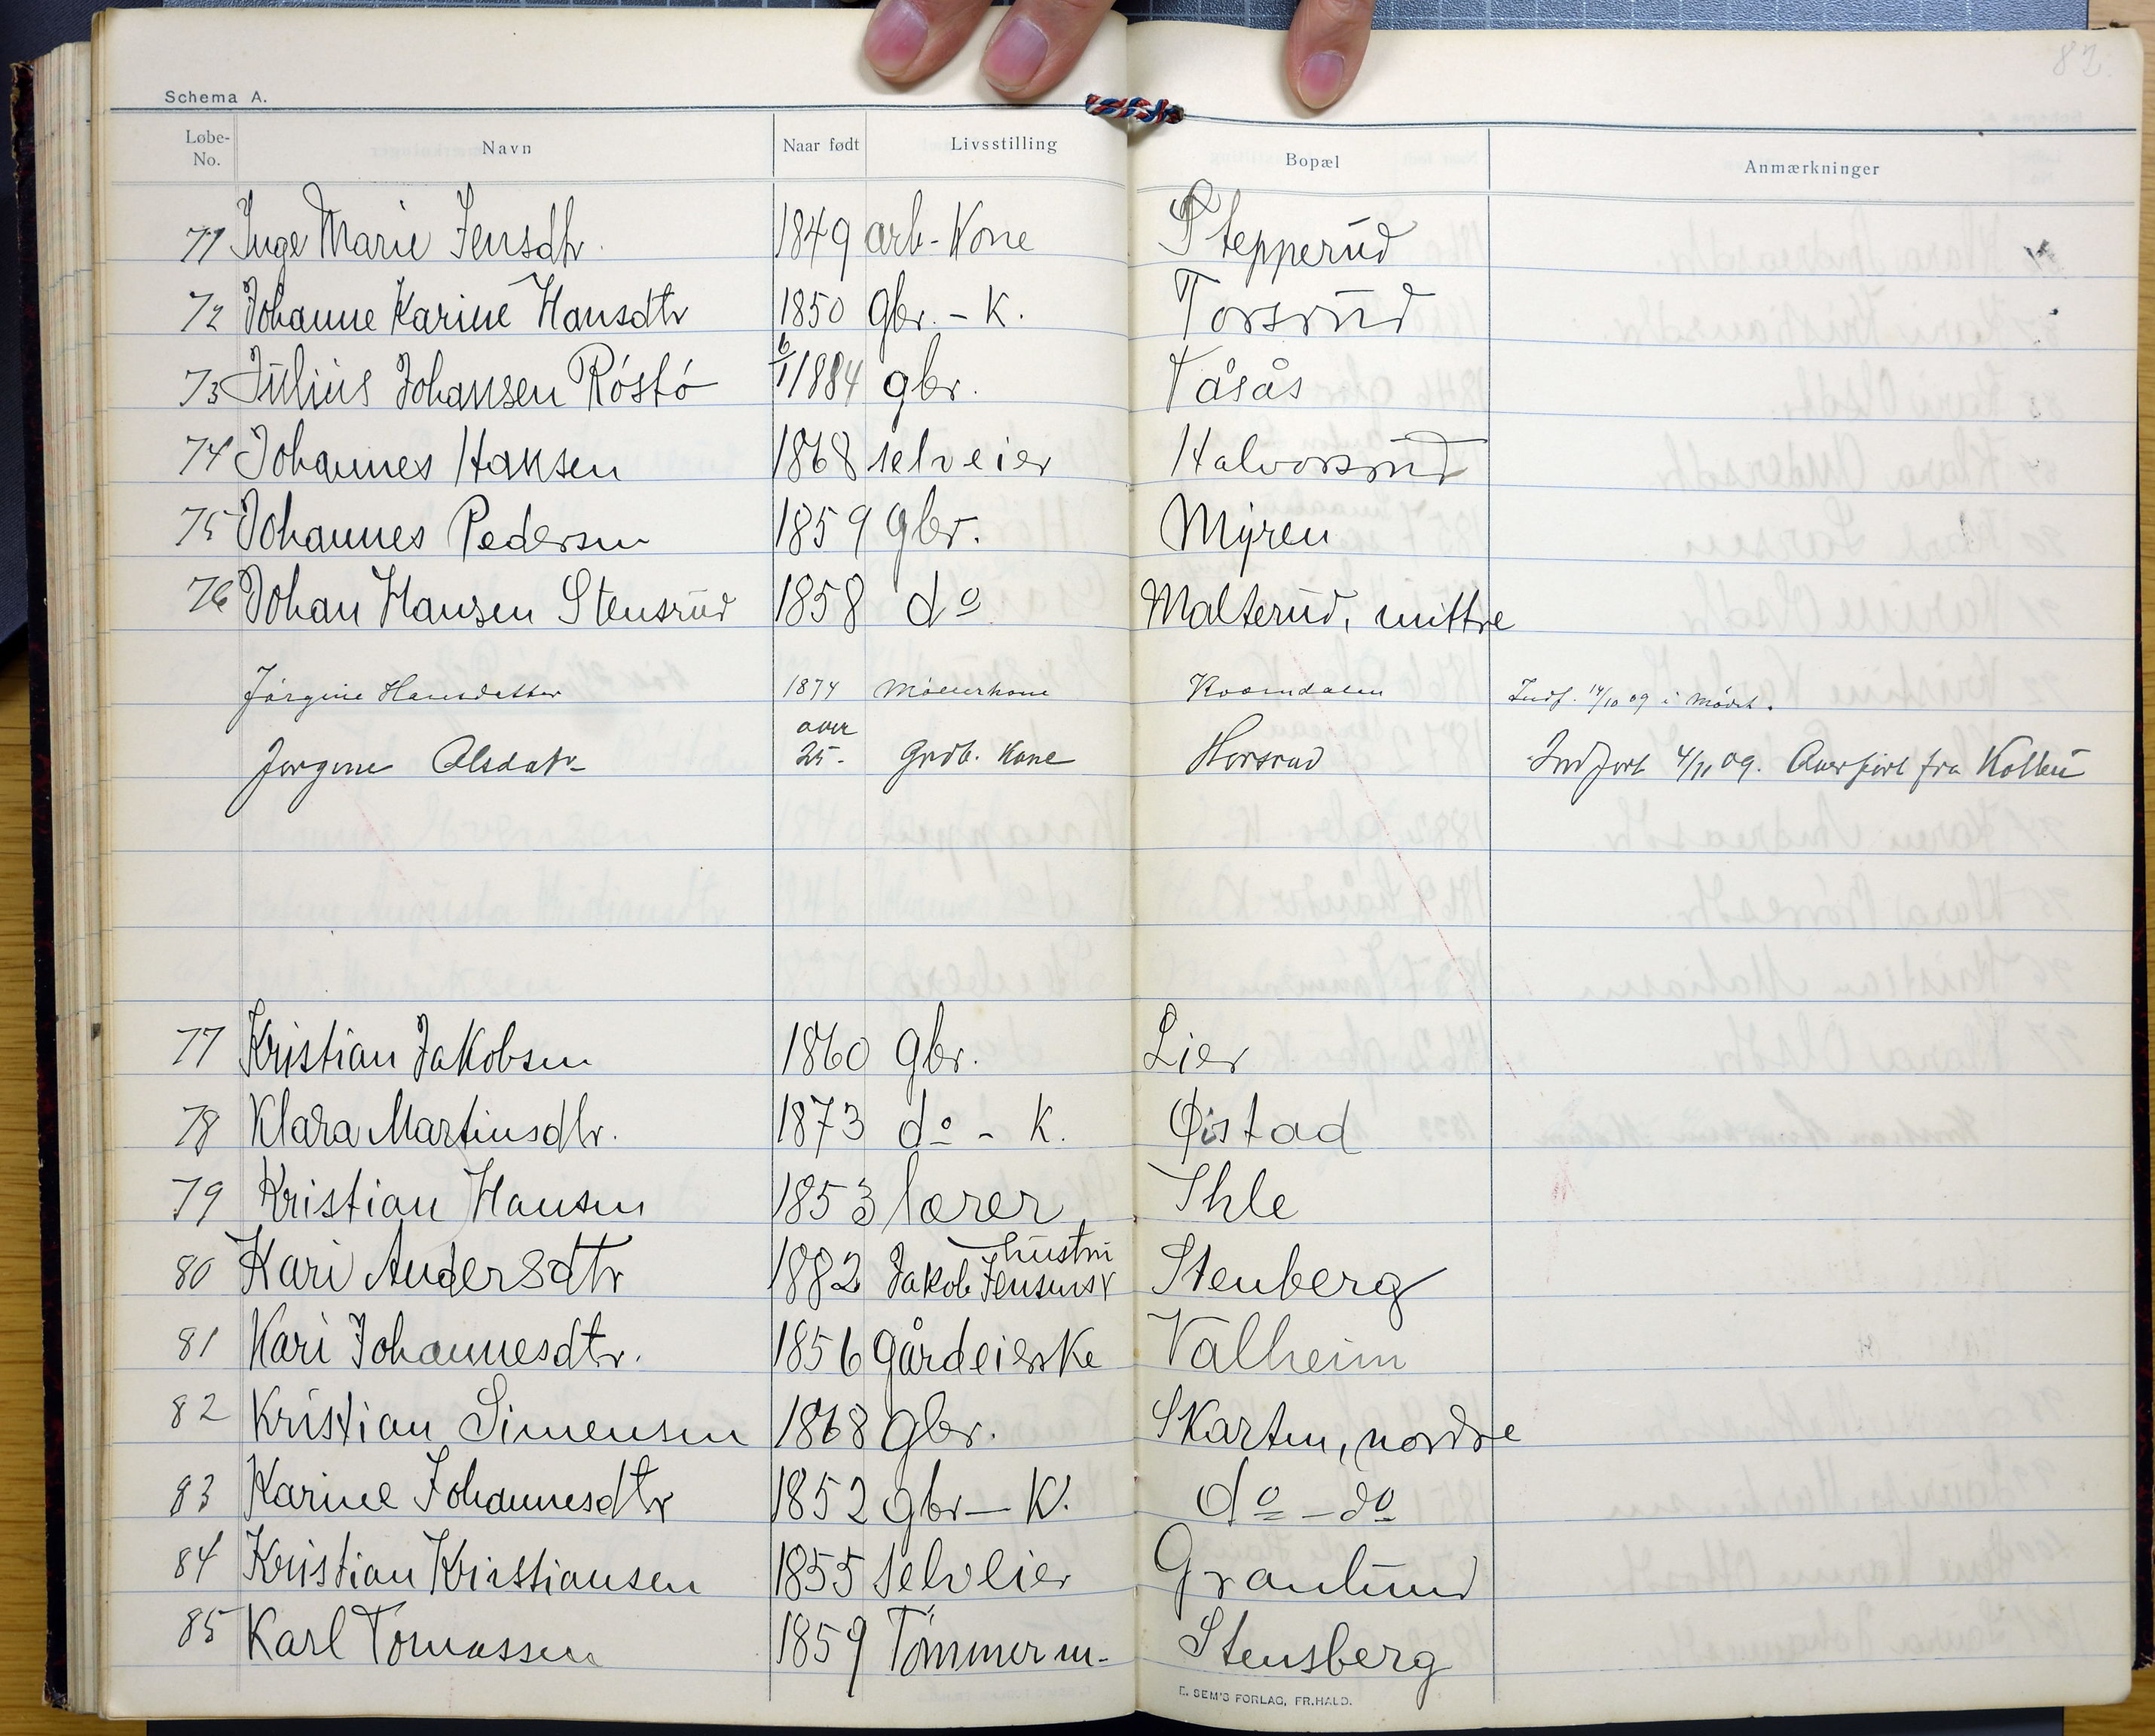 82.
Schema A.
Løbe-No. Navn Naar født Livsstilling Bopæl Anmærkninger
71 Inge Marie Jensdtr. 1849 arb-Kone Stepperud
72 Johanne Karine Hansdtr 1850 gbr. - K. Torsrud
73 Julius Johansen Röstö 6/1 1884 gbr. Våsås
74 Johannes Hansen 1868 selveier Halvorsrud
75 Johannes Pedersen 1859 gbr. Myren
76 Johan Hansen Stensrud 1858 do Malterud, mittre
Jörgine Hansdatter 1874 Möllerkone Kværndalen Indf. 14/10 09 i Mödet.
Jørgine Olsdatr over 25- Grdb. Kone Horsrud Indført 4/11 09. Overført fra Kolbu
77 Kristian Jakobsen 1860 gbr. Lier
78 Klara Martinsdtr. 1873 do - K. Øistad
79 Kristian Hansen 1853 lærer Ihle
80 Kari Andersdtr 1882 Jakob Jensens hustru Stenberg
81 Kari Johannesdtr. 1856 Gårdeierske Valheim
82 Kristian Simensen 1868 gbr. Skarten, nordre
83 Karine Johannesdtr 1852 gbr - K. do - do
84 Kristian Kristiansen 1855 selveier Granlund
85 Karl Tomassen 1859 Tömmerm. Stensberg
E. SEM'S FORLAG, FR.HALD.